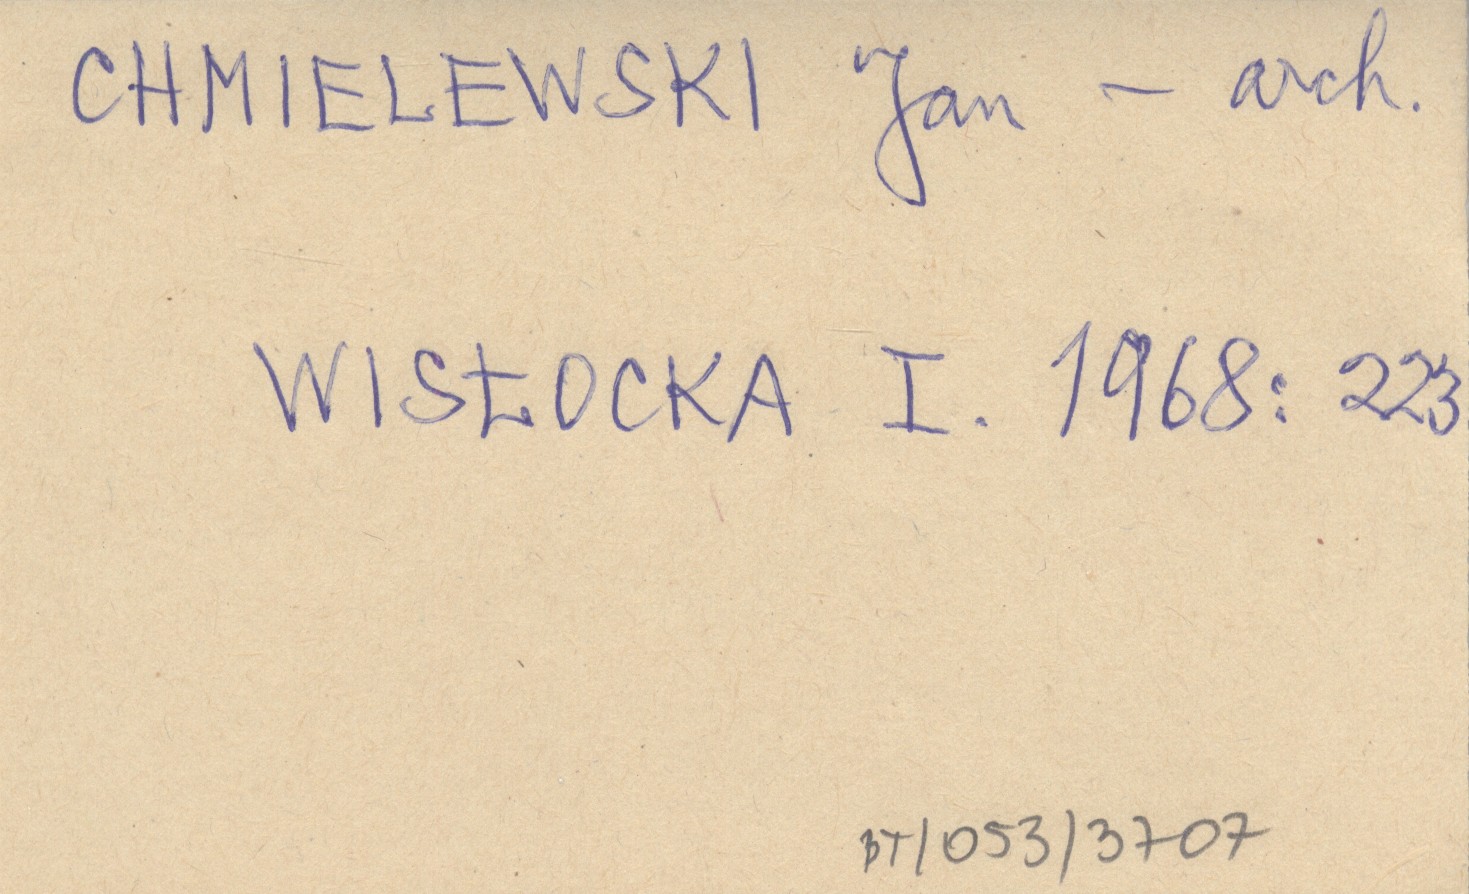 CHMIELEWSKI Jan – arch.
WISŁOCKA I. 1968: 223.
BT/053/3707